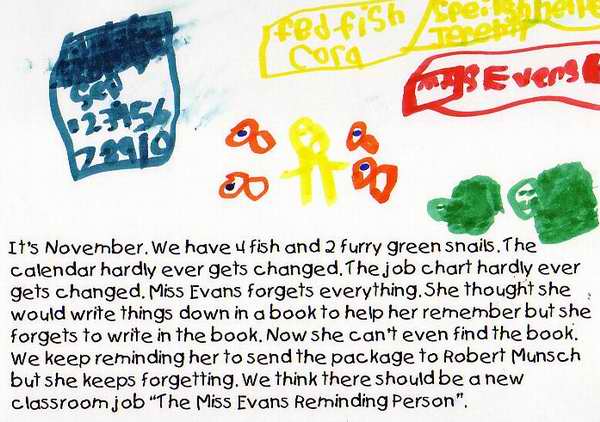 fed fish
Cora
Miss Evens
It's November. We have 4 fish and 2 furry green snails. The
calendar hardly ever gets changed. The job chart hardly ever
gets changed. Miss Evans forgets everything. She thought she
would write things down in a book to help her remember but she
forgets to write in the book. Now she can't even find the book.
We keep reminding her to send the package to Robert Munsch
but she keeps forgetting. We think there should be a new
classroom job “The Miss Evans Reminding Person”.